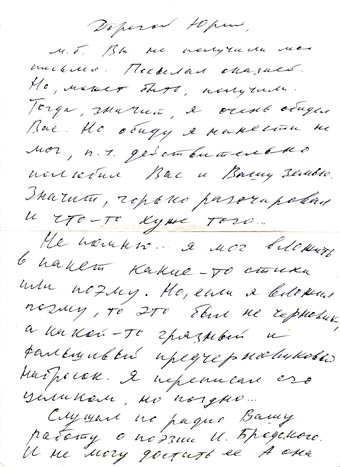 Дорогой Юрий,
м.б. Вы не получили мое
письмо. Посылал оказией.
Но, может быть, получили.
Тогда, значит, я очень обидел
Вас. Но обиду я нанести не
мог, п.ч. действительно
полюбил Вас и Вашу землю.
Значит, горько разочаровал
и что-то хуже того...
Не помню... я мог вложить
в пакет какие-то стихи
или поэму. Но, если я вложил
поэму, то это был не черновик,
а какой-то грязный и
фальшивый предчерновиковый
набросок. Я переписал его
целиком, но поздно...
Слушал по радио Вашу
работу о поэзии И. Бродского.
И не могу достать её А она